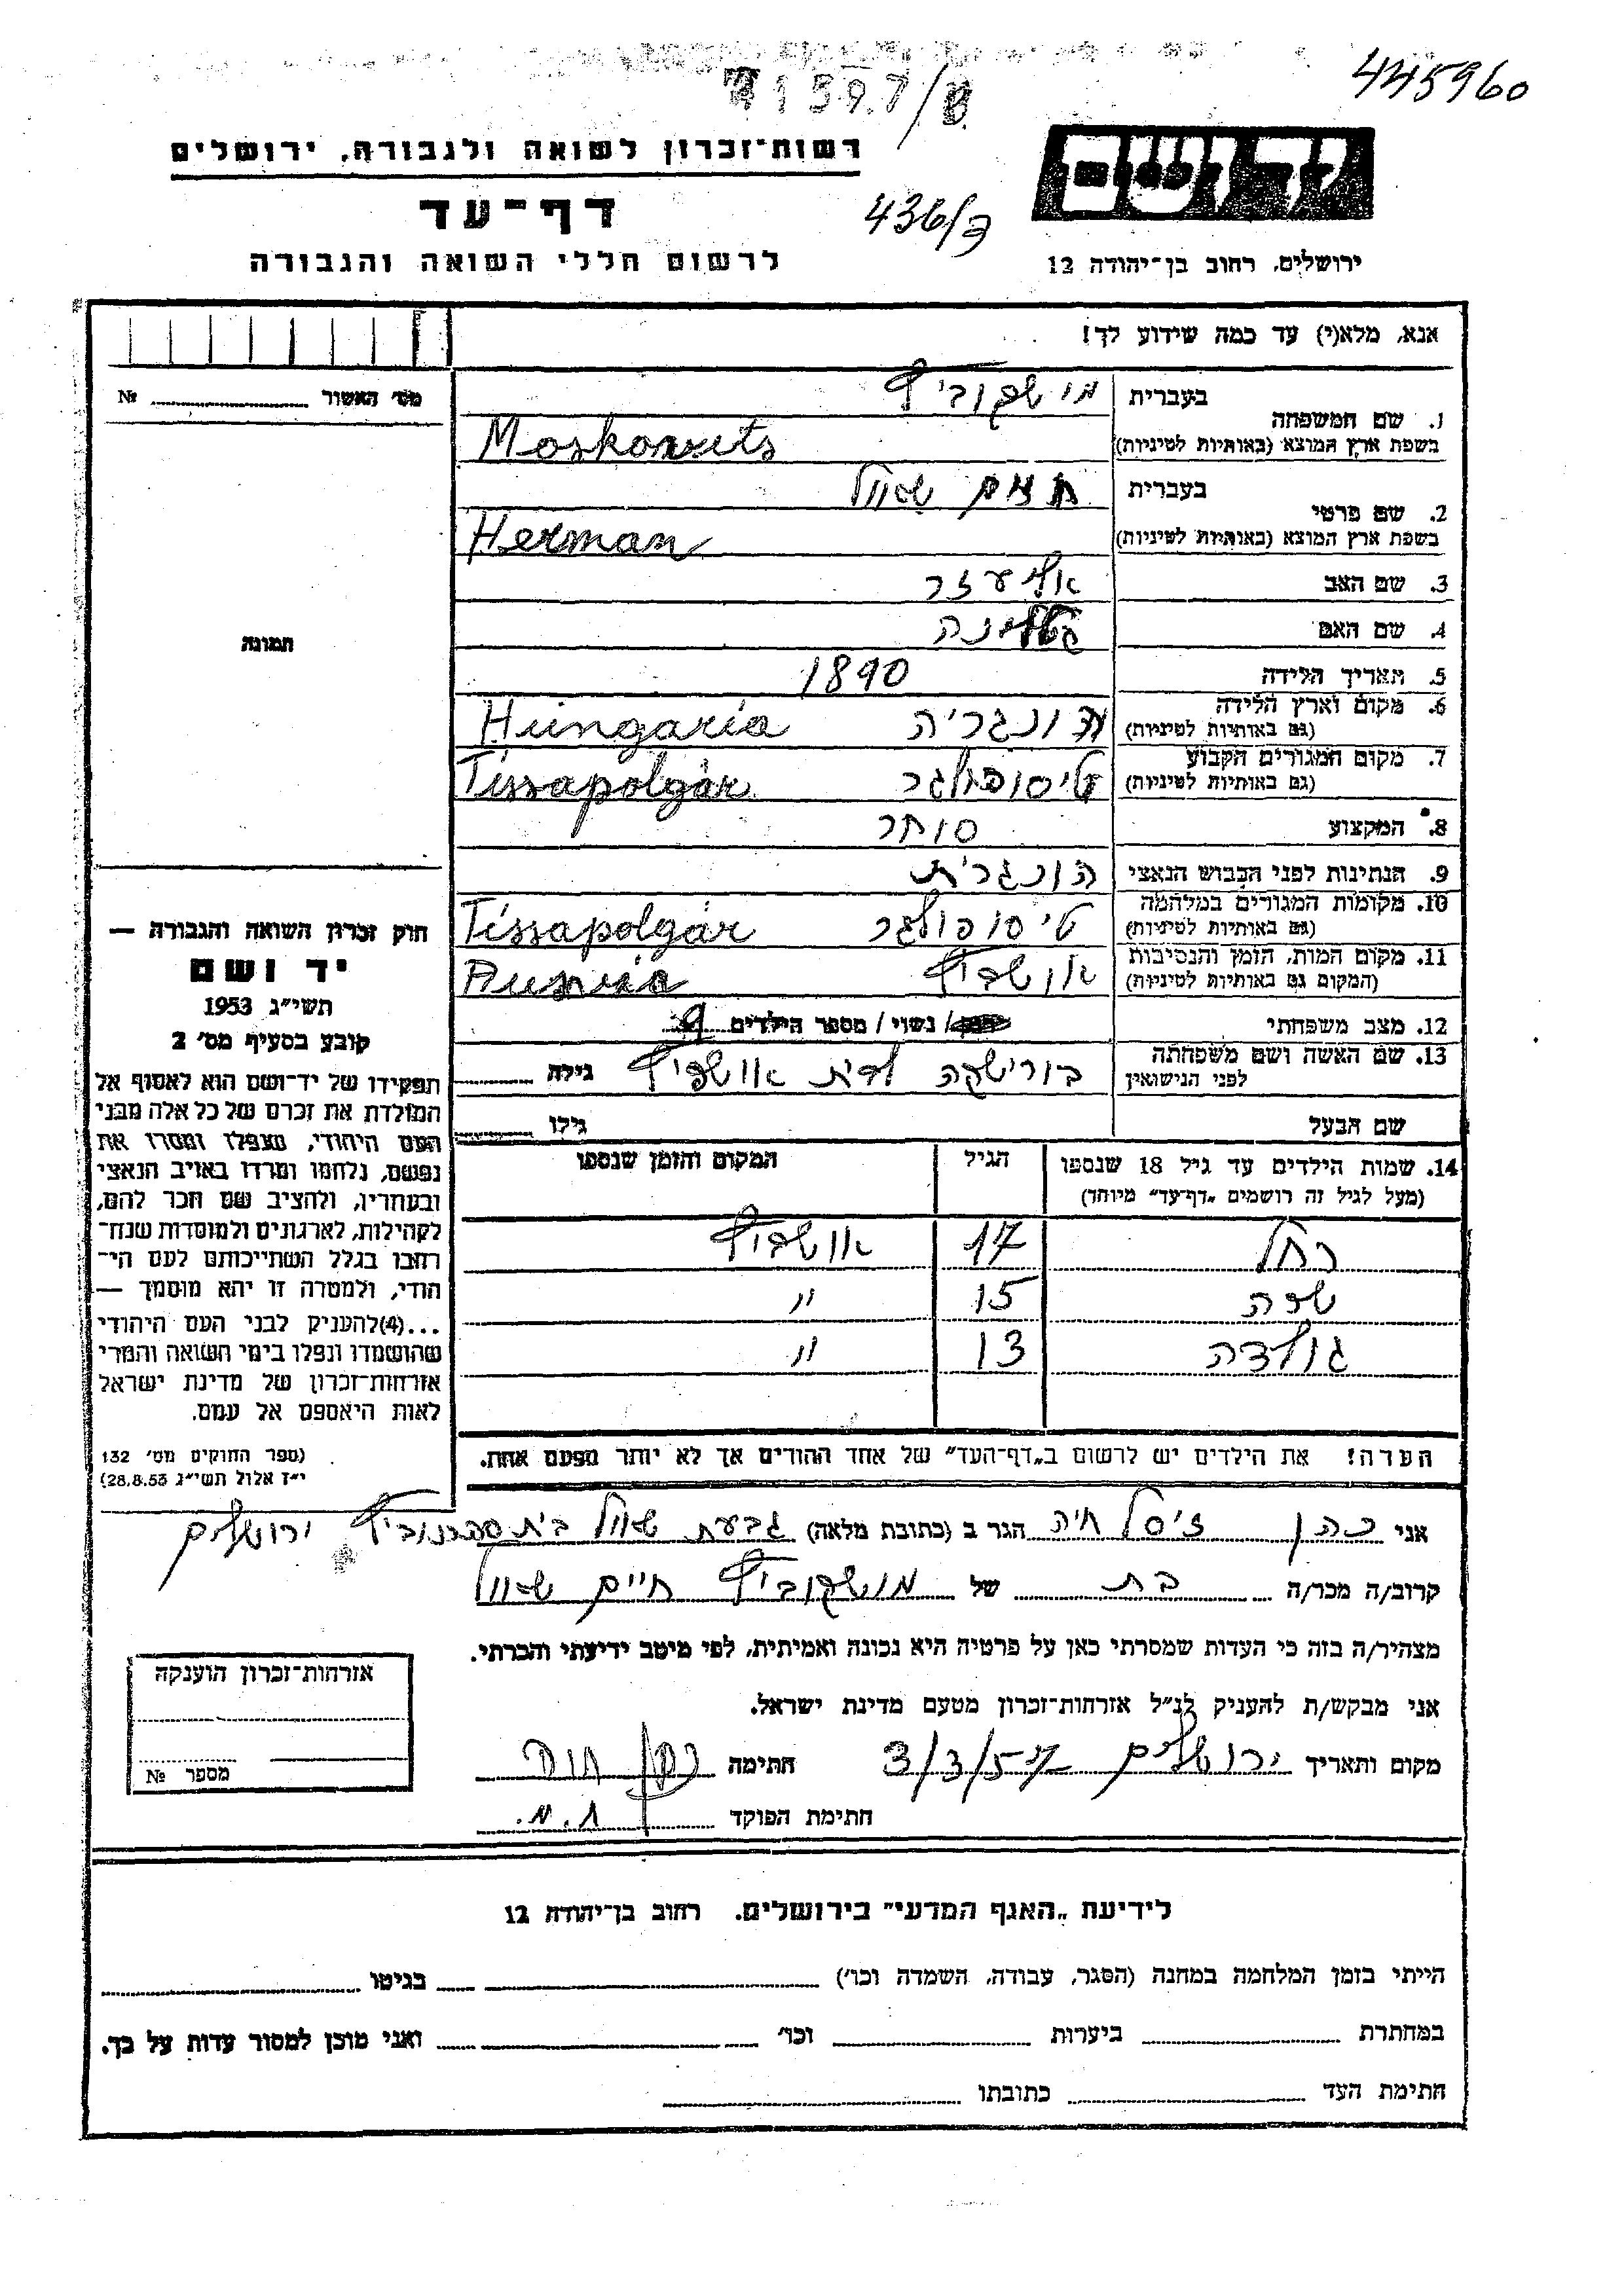 445960
רשות־זכרון לשואה ולגבורה, ירושלים
דף־עד
436/ק
לרשום חללי השואה והגבורה
ירושלים, רחוב בן־יהודה 12
אנא, מלא(י) עד כמה שידוע לך!
מס׳ האשור № 
1. שם המשפחה
בעברית מושקוביץ
בשפת ארץ המוצא (באותיות לטיניות) Moskovits
2. שם פרטי
בעברית חיים שאול
בשפת ארץ המוצא (באותיות לטיניות) Herman
3. שם האב אליעזר
4. שם האם
5. תאריך הלידה 1890
6. מקום וארץ הלידה (גם באותיות לטיניות) הונגריה Hungaria
7. מקום המגורים הקבוע (גם באותיות לטיניות) טיסופולגר Tissapolgár
8. המקצוע סוחר
9. הנתינות לפני הכבוש הנאצי הונגרית
10. מקומות המגורים במלחמה (גם באותיות לטיניות) טיסופולגר Tissapolgár
11. מקום המות, הזמן והנסיבות (המקום גם באותיות לטיניות) אושביץ
12. מצב משפחתי / נשוי / מספר הילדים 9
13. שם האשה ושם משפחתה לפני הנישואין בורישקה גילה
שם הבעל גילו
14. שמות הילדים עד גיל 18 שנספו הגיל המקום והזמן שנספו
(מעל לגיל זה רושמים „דף־עד״ מיוחד)
רחל 17 אושביץ
שרה 15 "
גולדה 13 "
הערה! את הילדים יש לרשום ב„דף־העד״ של אחד ההורים אך לא יותר מפעם אחת.
תמונה
חוק זכרון השואה והגבורה —
יד ושם
תשי״ג 1953
קובע בסעיף מס׳ 2
תפקידו של יד־ושם הוא לאסוף אל
המולדת את זכרם של כל אלה מבני
העם היהודי, שנפלו ומסרו את
נפשם, נלחמו ומרדו באויב הנאצי
ובעוזריו, ולהציב שם וזכר להם,
לקהילות, לארגונים ולמוסדות שנח־
רבו בגלל השתייכותם לעם הי־
הודי, ולמטרה זו יהא מוסמך —
...(4)להעניק לבני העם היהודי
שהושמדו ונפלו בימי השואה והמרי
אזרחות־זכרון של מדינת ישראל
לאות היאספם אל עמם.
(ספר החוקים מס׳ 132
י״ז אלול תשי״ג 28.8.53)
אני כהן זיסל חיה הגר ב (כתובת מלאה) גבעת שאול בית ירושלים
קרוב/ה מכר/ה בת של מושקוביץ חיים שאול
מצהיר/ה בזה כי העדות שמסרתי כאן על פרטיה היא נכונה ואמיתית, לפי מיטב ידיעתי והכרתי.
אני מבקש/ת להעניק לנ״ל אזרחות־זכרון מטעם מדינת ישראל.
מקום ותאריך ירושלים 3/3/57 חתימה כהן חיה
חתימת הפוקד
אזרחות־זכרון הוענקה
מספר №
לידיעת „האגף המדעי״ בירושלים, רחוב בן־יהודה 12
הייתי בזמן המלחמה במחנה (הסגר, עבודה, השמדה וכו׳) בגיטו
במחתרת ביערות וכו׳ ואני מוכן למסור עדות על כך.
חתימת העד כתובתו